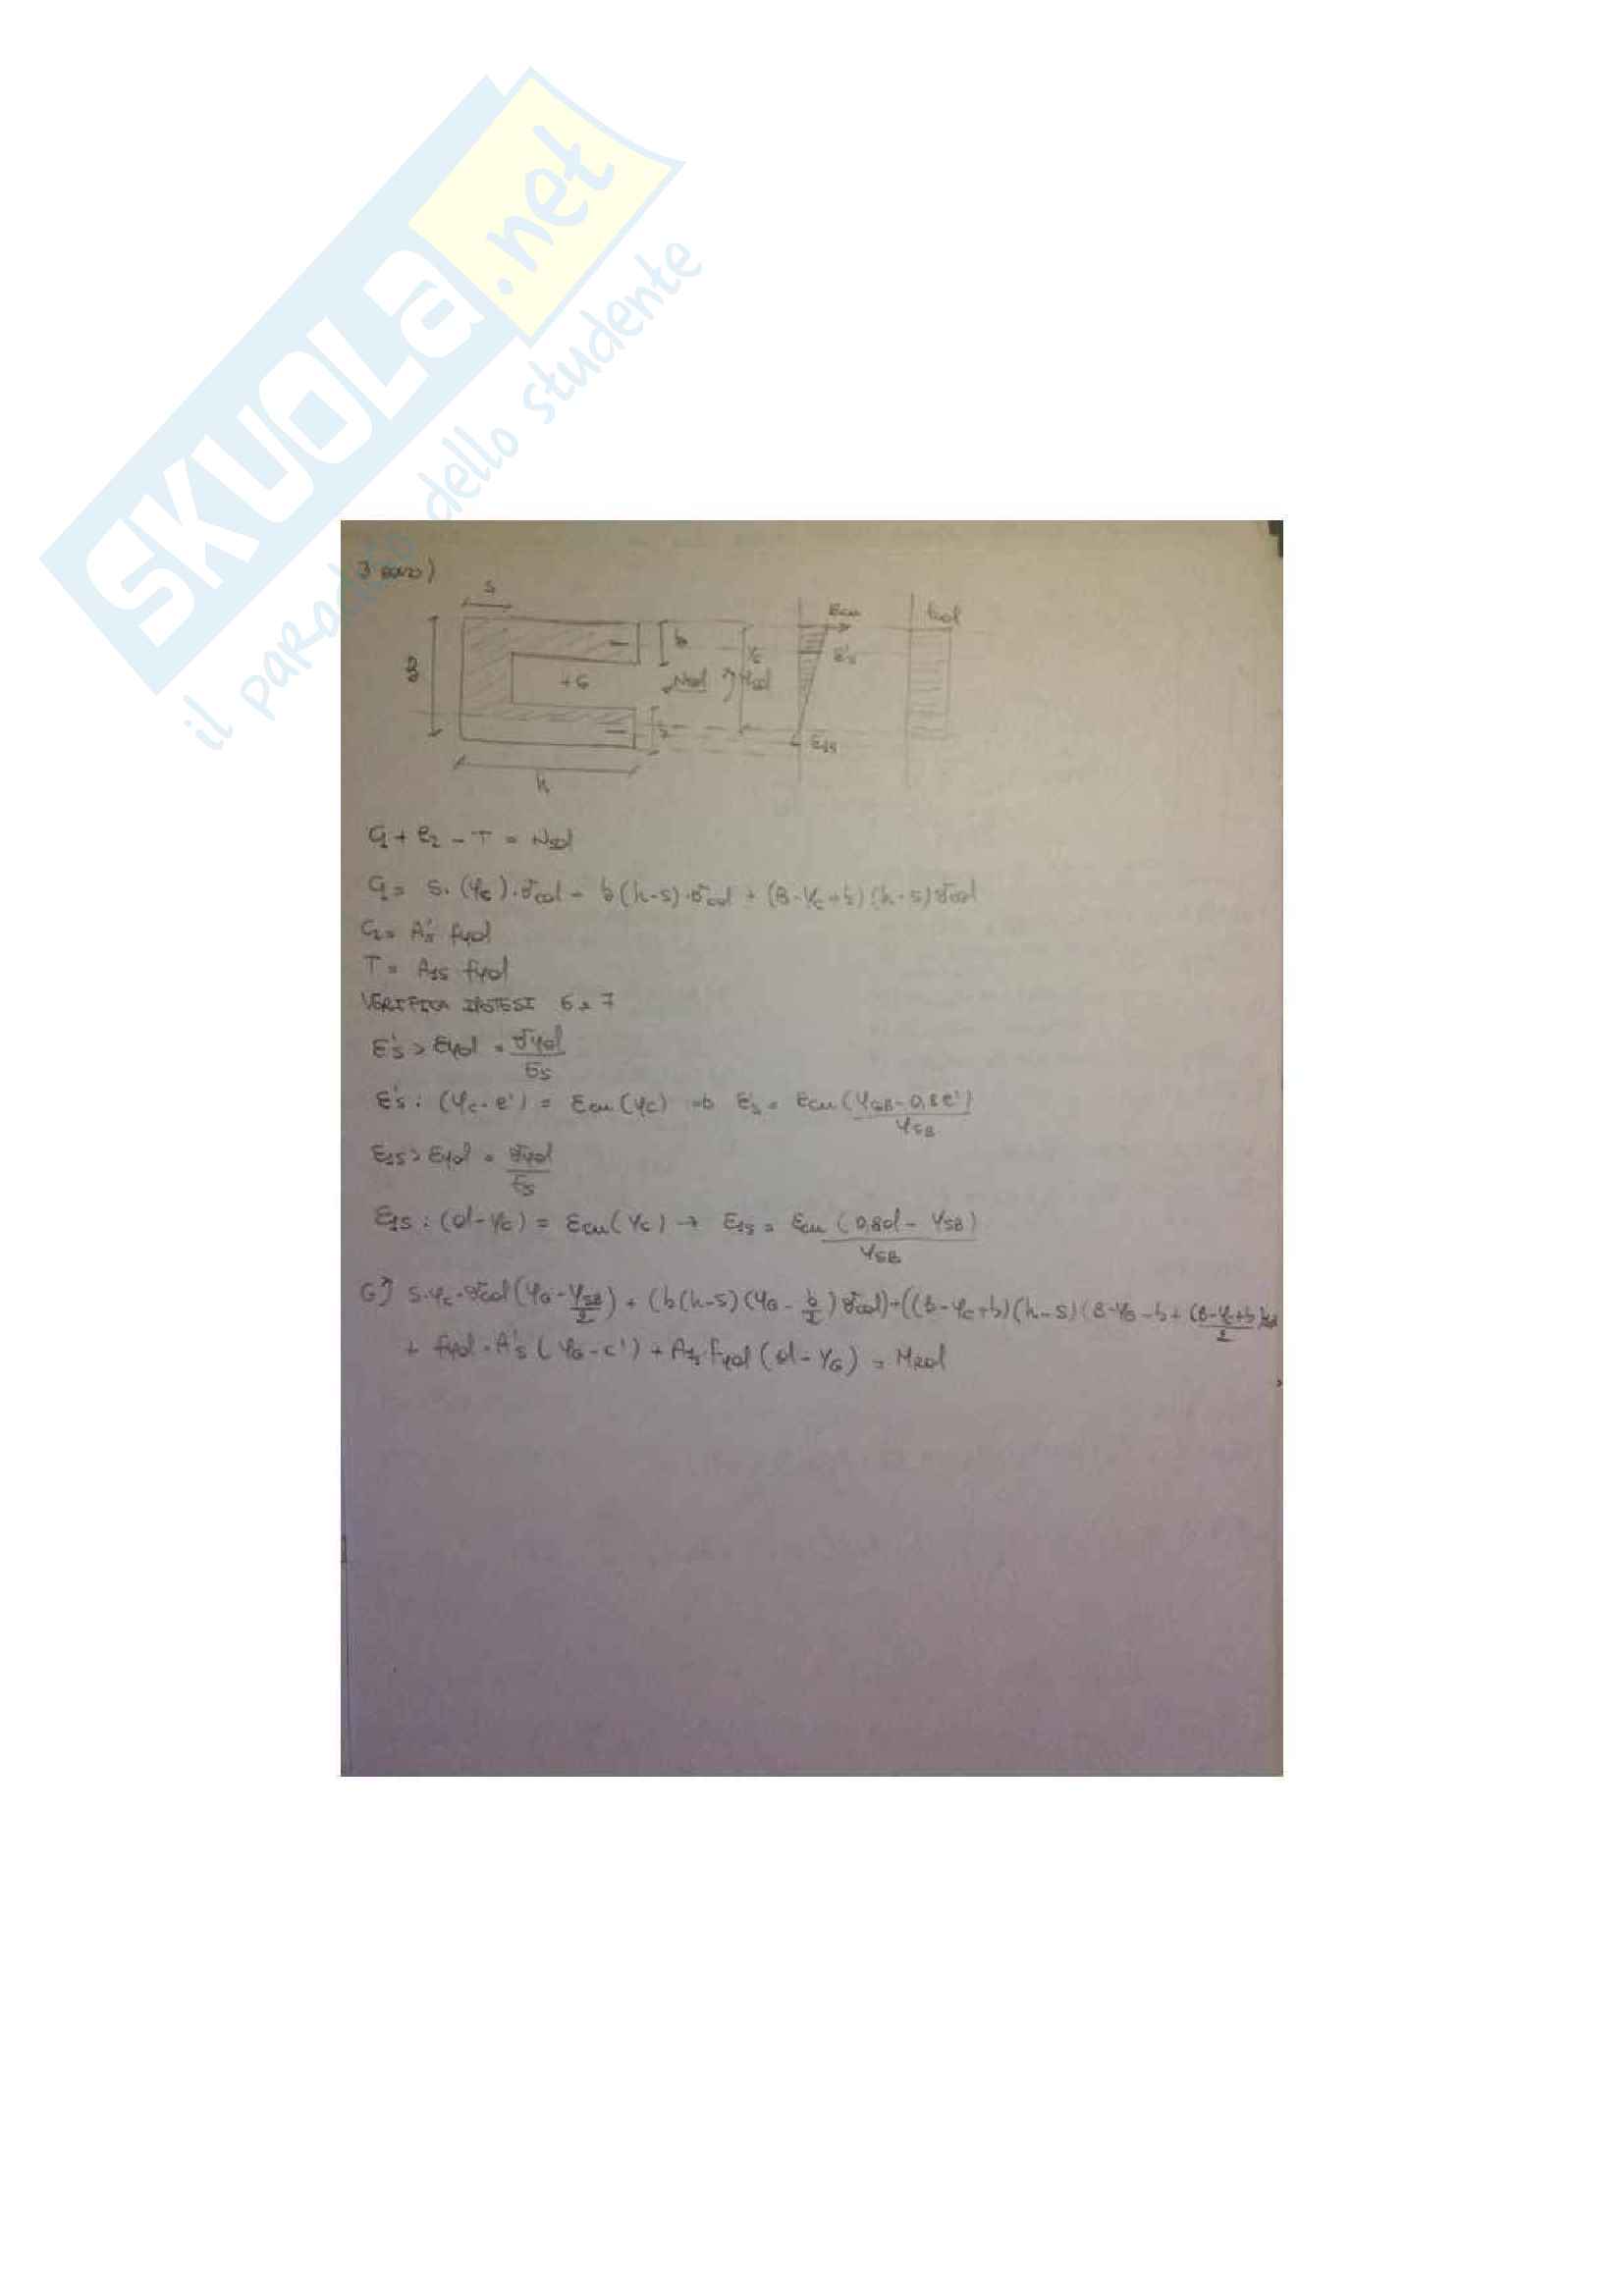 SKUOLA.net
il paradiso dello studente
3 caso)
s
B
b
yc
+G
Nsd Msd
h
εcu
ε's
ε1s
fcd
C1 + C2 - T = Nsd
C1 = s · (yc) · σcd - b (h-s) · σcd + (B - yc + b) (h-s) σcd
C2 = A's fyd
T = A1s fyd
VERIFICA IPOTESI 6 e 7
ε's > εyd = σyd / Es
ε's : (yc - c') = εcu (yc) => ε's = εcu (ySB - 0,8c') / ySB
ε1s > εyd = σyd / Es
ε1s : (d - yc) = εcu (yc) → ε1s = εcu (0,8d - ySB) / ySB
G) s·yc·σcd (yG - ySB/2) + (b(h-s)(yG - b/2) σcd) + ((B-yc+b)(h-s)(B-yG-b+(B-yc+b)/2)
+ fyd · A's (yG - c') + A1s fyd (d - yG) = MRd